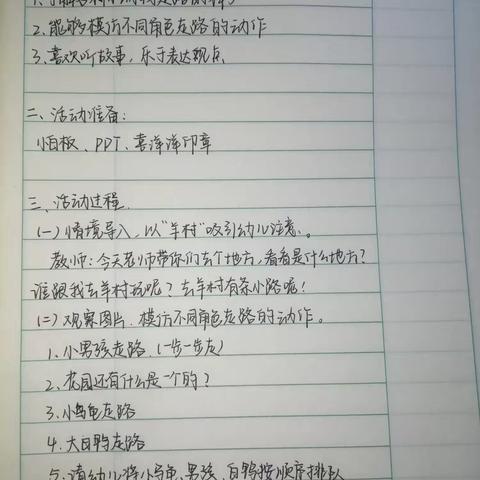 2.能够模仿不同角色走路的动作
3.喜欢听故事，乐于表达观点
二、活动准备：
小白板、PPT、喜洋洋印章
三、活动过程.
(一)情境导入，以"羊村"吸引幼儿注意。
教师：今天老师带你们去个地方，看看是什么地方？
谁跟我去羊村玩呢？去羊村有条小路呢！
(二)观察图片、模仿不同角色走路的动作。
1、小男孩走路.(一步一步走)
2、花园还有什么是一个的？
3.小乌龟走路
4.大白鸭走路
5、请幼儿将小乌龟、男孩、白鸭按顺序排队